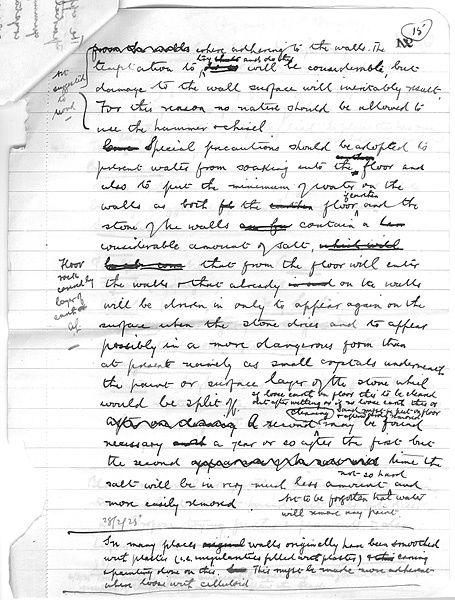 15
from the walls where adhering to the walls. The
temptation to try chisels and do this will be considerable, but
damage to the wall surface will inevitably result
For this reason no native should be allowed to
use the hammer & chisel
Special precautions should be adopted to
prevent water from soaking into the floor and
also to put the minimum of water on the
walls as both the earthen floor and the
stone of the walls contain a
considerable amount of salt, which will
that from the floor will enter
the walls & that already on the walls
will be driven in only to appear again on the
surface when the stone dries and to appear
possibly in a more dangerous form than
at present namely as small crystals underneath
the paint or surface layer of the stone which
would be split off. if loose earth on floor this to be cleaned
out after wetting or if no loose earth this or
sand might be put on floor
cleaning
A second may be found
necessary a year or so after the first but
the second time the
not so hard
salt will be in very much less amount and
more easily removed. but to be forgotten that water
will remove any paint
28/2/25
In many places walls originally had been smoothed
with plaster (i.e. irregularities filled with plaster)
painting done on this. This might be made more adherent
where loose with celluloid
Floor
rock
covered by
layer of